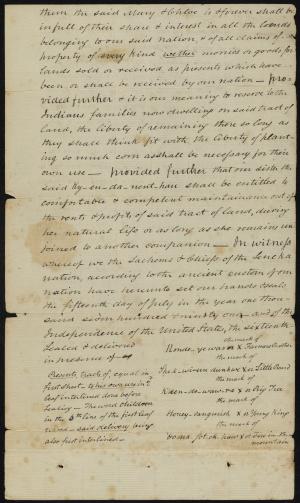 them the said Mary & Chloe is & forever shall be
in full of their share & interest in all the lands
belonging to our said nation, & of all claims of
property of every kind wether monies or goods for
lands sold or received as presents which have
been or shall be received by our nation — pro
vided further & it is our meaning to reserve to the
Indians families now dwelling on said tract of
land, the liberty of remaining there so long as
they shall think fit with the liberty of plant-
ing so much corn as shall be necessary for their
own use — provided further that our sister the
said shall be entitled to
comfortable & competent maintainance out of
the rents & profits of said tract of land, during
her natural life or as long as she remains un
joined to another companion — In witness
whereof we the Sachems & Chiefs of the Seneka
nation, according to the ancient custom of our
nation have hereunto set our hands & seals
the fifteenth day of July in the year one thou-
sand seven hundred & ninety one and of the
Independence of the United States, the sixteenth
Sealed & delivered
in presence of
the mark of
x Farmers Brother
the mark of
x or Little Beard
the mark of
x or Big Tree
the mark of
x or Young King
the mark of
mountain
The words tract of, equal in
first sheet
leaf interlined done before
Sealing — The word children
in the 8th line of the first leaf
said delivery being
also first interlined —